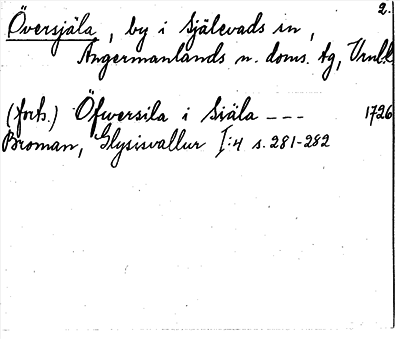 2.
Översjäla, by i Själevads sn,
Ångermanlands n. doms. tg, Vrnl.
(forts.) Öfwersila i Siäla --- 1726
Broman, Glysisvallur I:4 s. 281-282